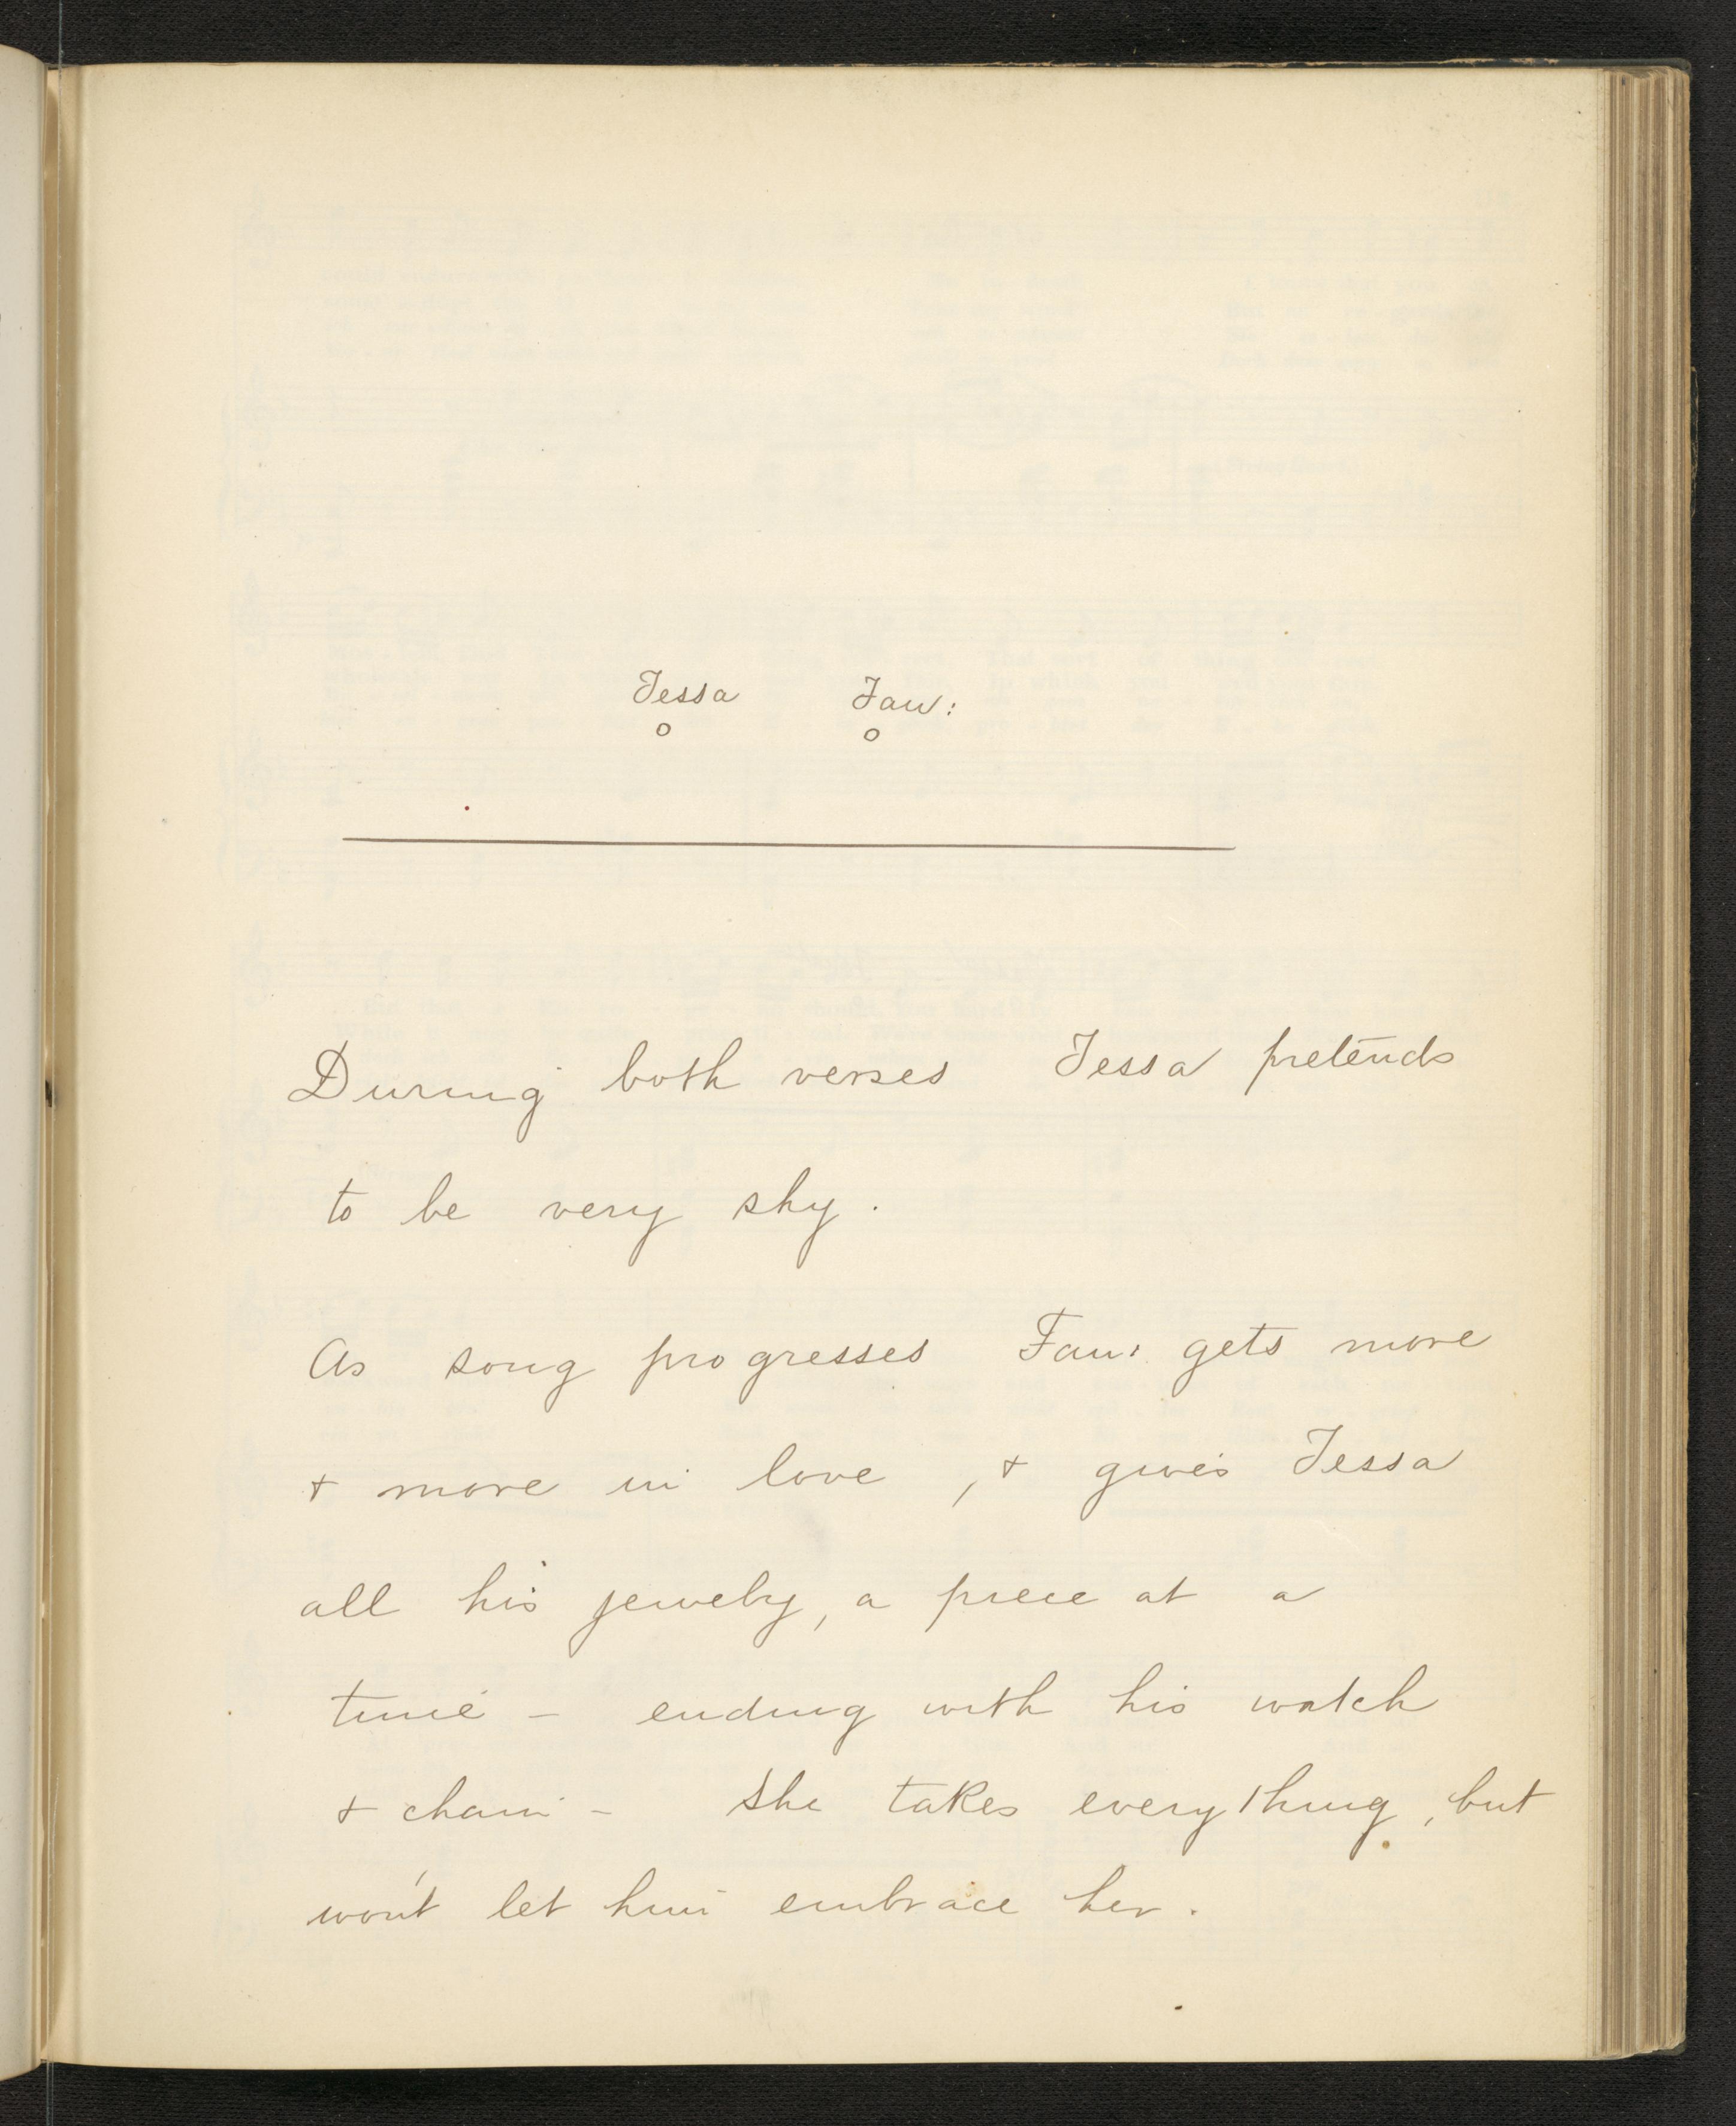 Tessa Fau:
o o
During both verses Tessa pretends
to be very shy.
As song progresses Fau: gets more
& more in love, & gives Tessa
all his jewelry, a piece at a
time – ending with his watch
& chain – She takes everything, but
won't let him embrace her.